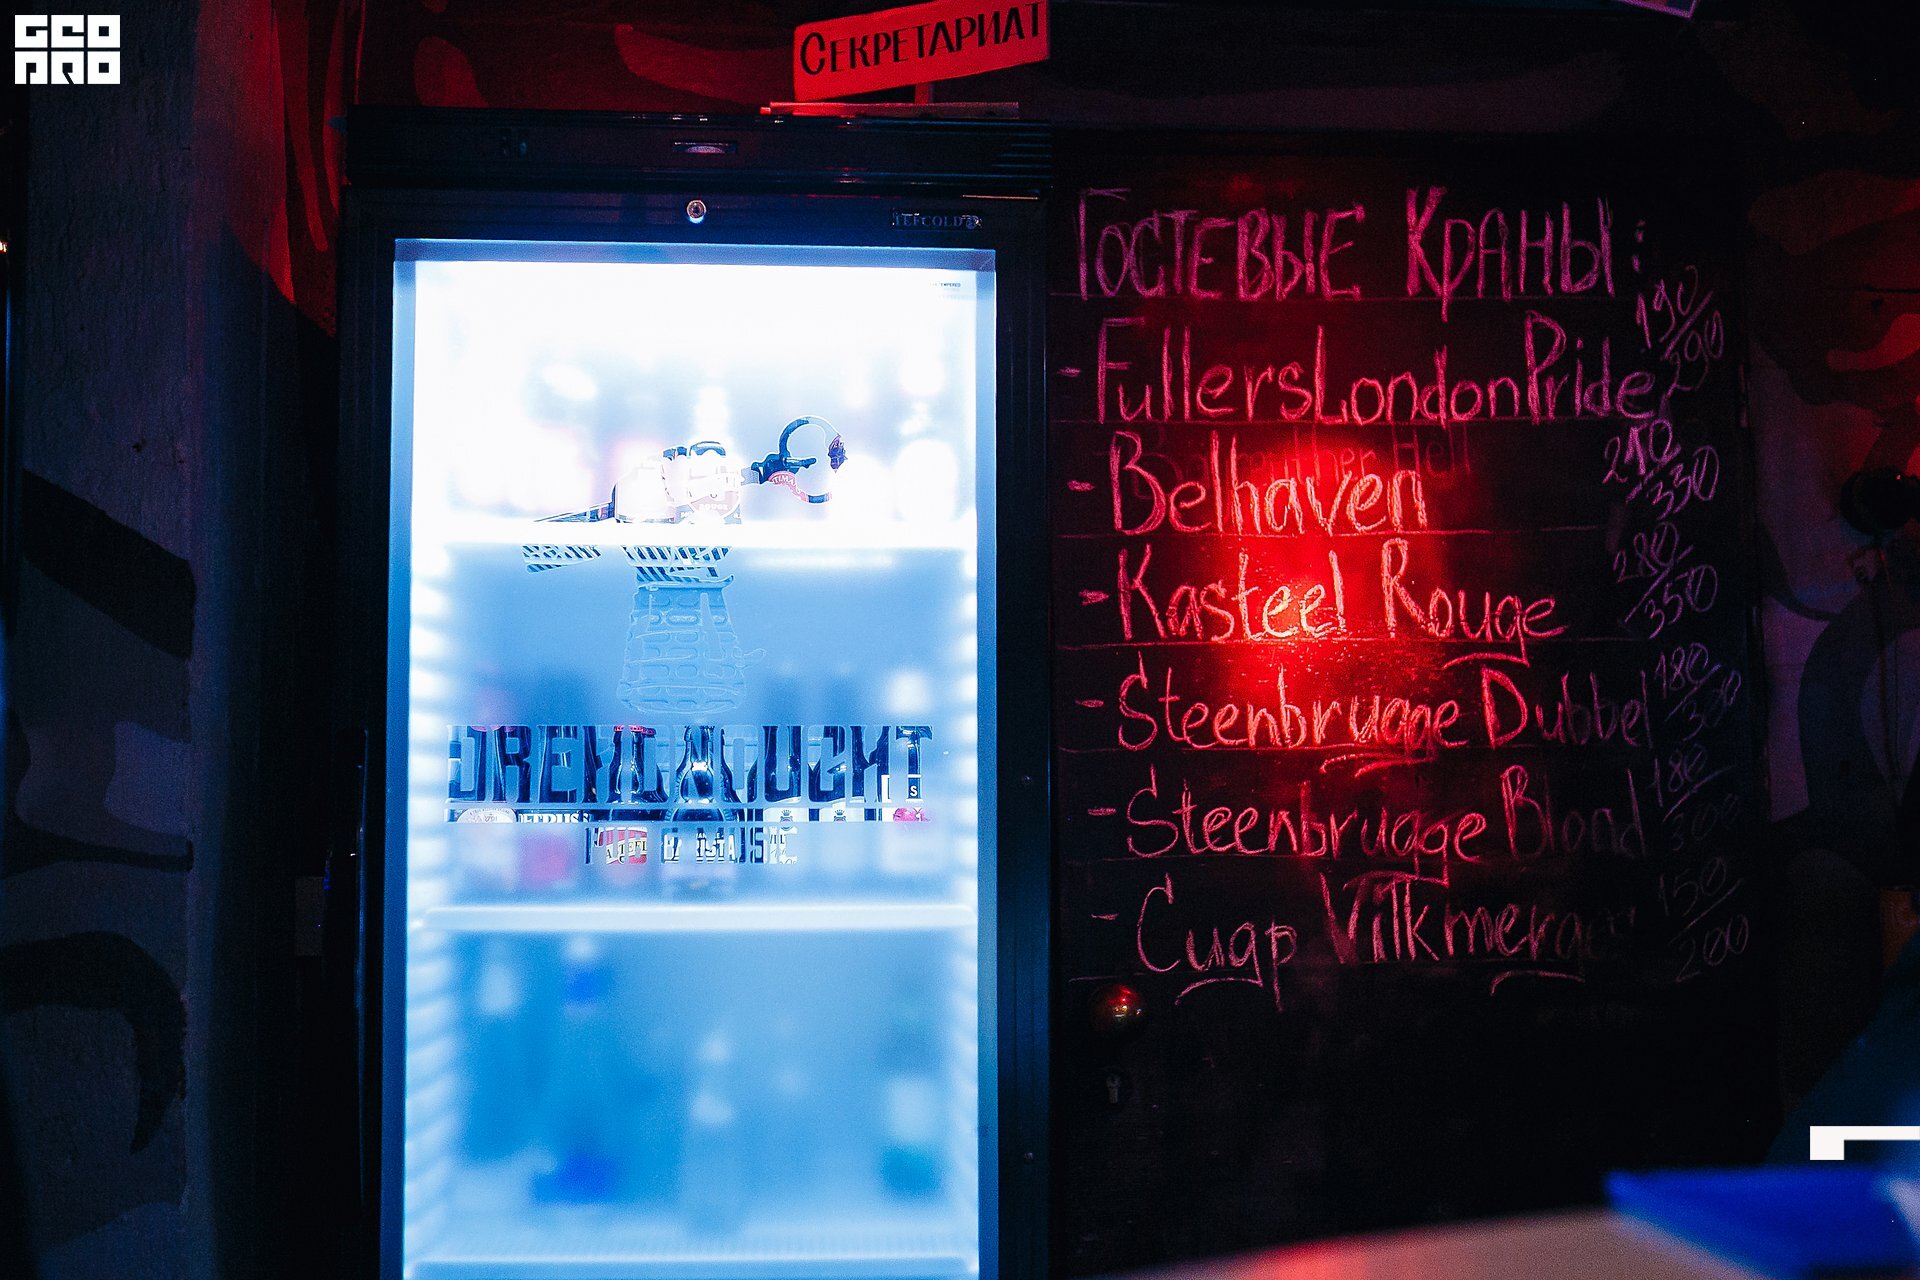 GEO
PRO
СЕКРЕТАРИАТ
TEFCOLD
Гостевые Краны:
- Fullers London Pride 190/290
- Belhaven 210/330
- Kasteel Rouge 280/350
- Steenbrugge Dubbel 180/300
- Steenbrugge Blond 180/300
- Сидр Vilkmerges 150/200
DREADNOUGHT
PUB & MUSIC
PETRUS
BARISTA